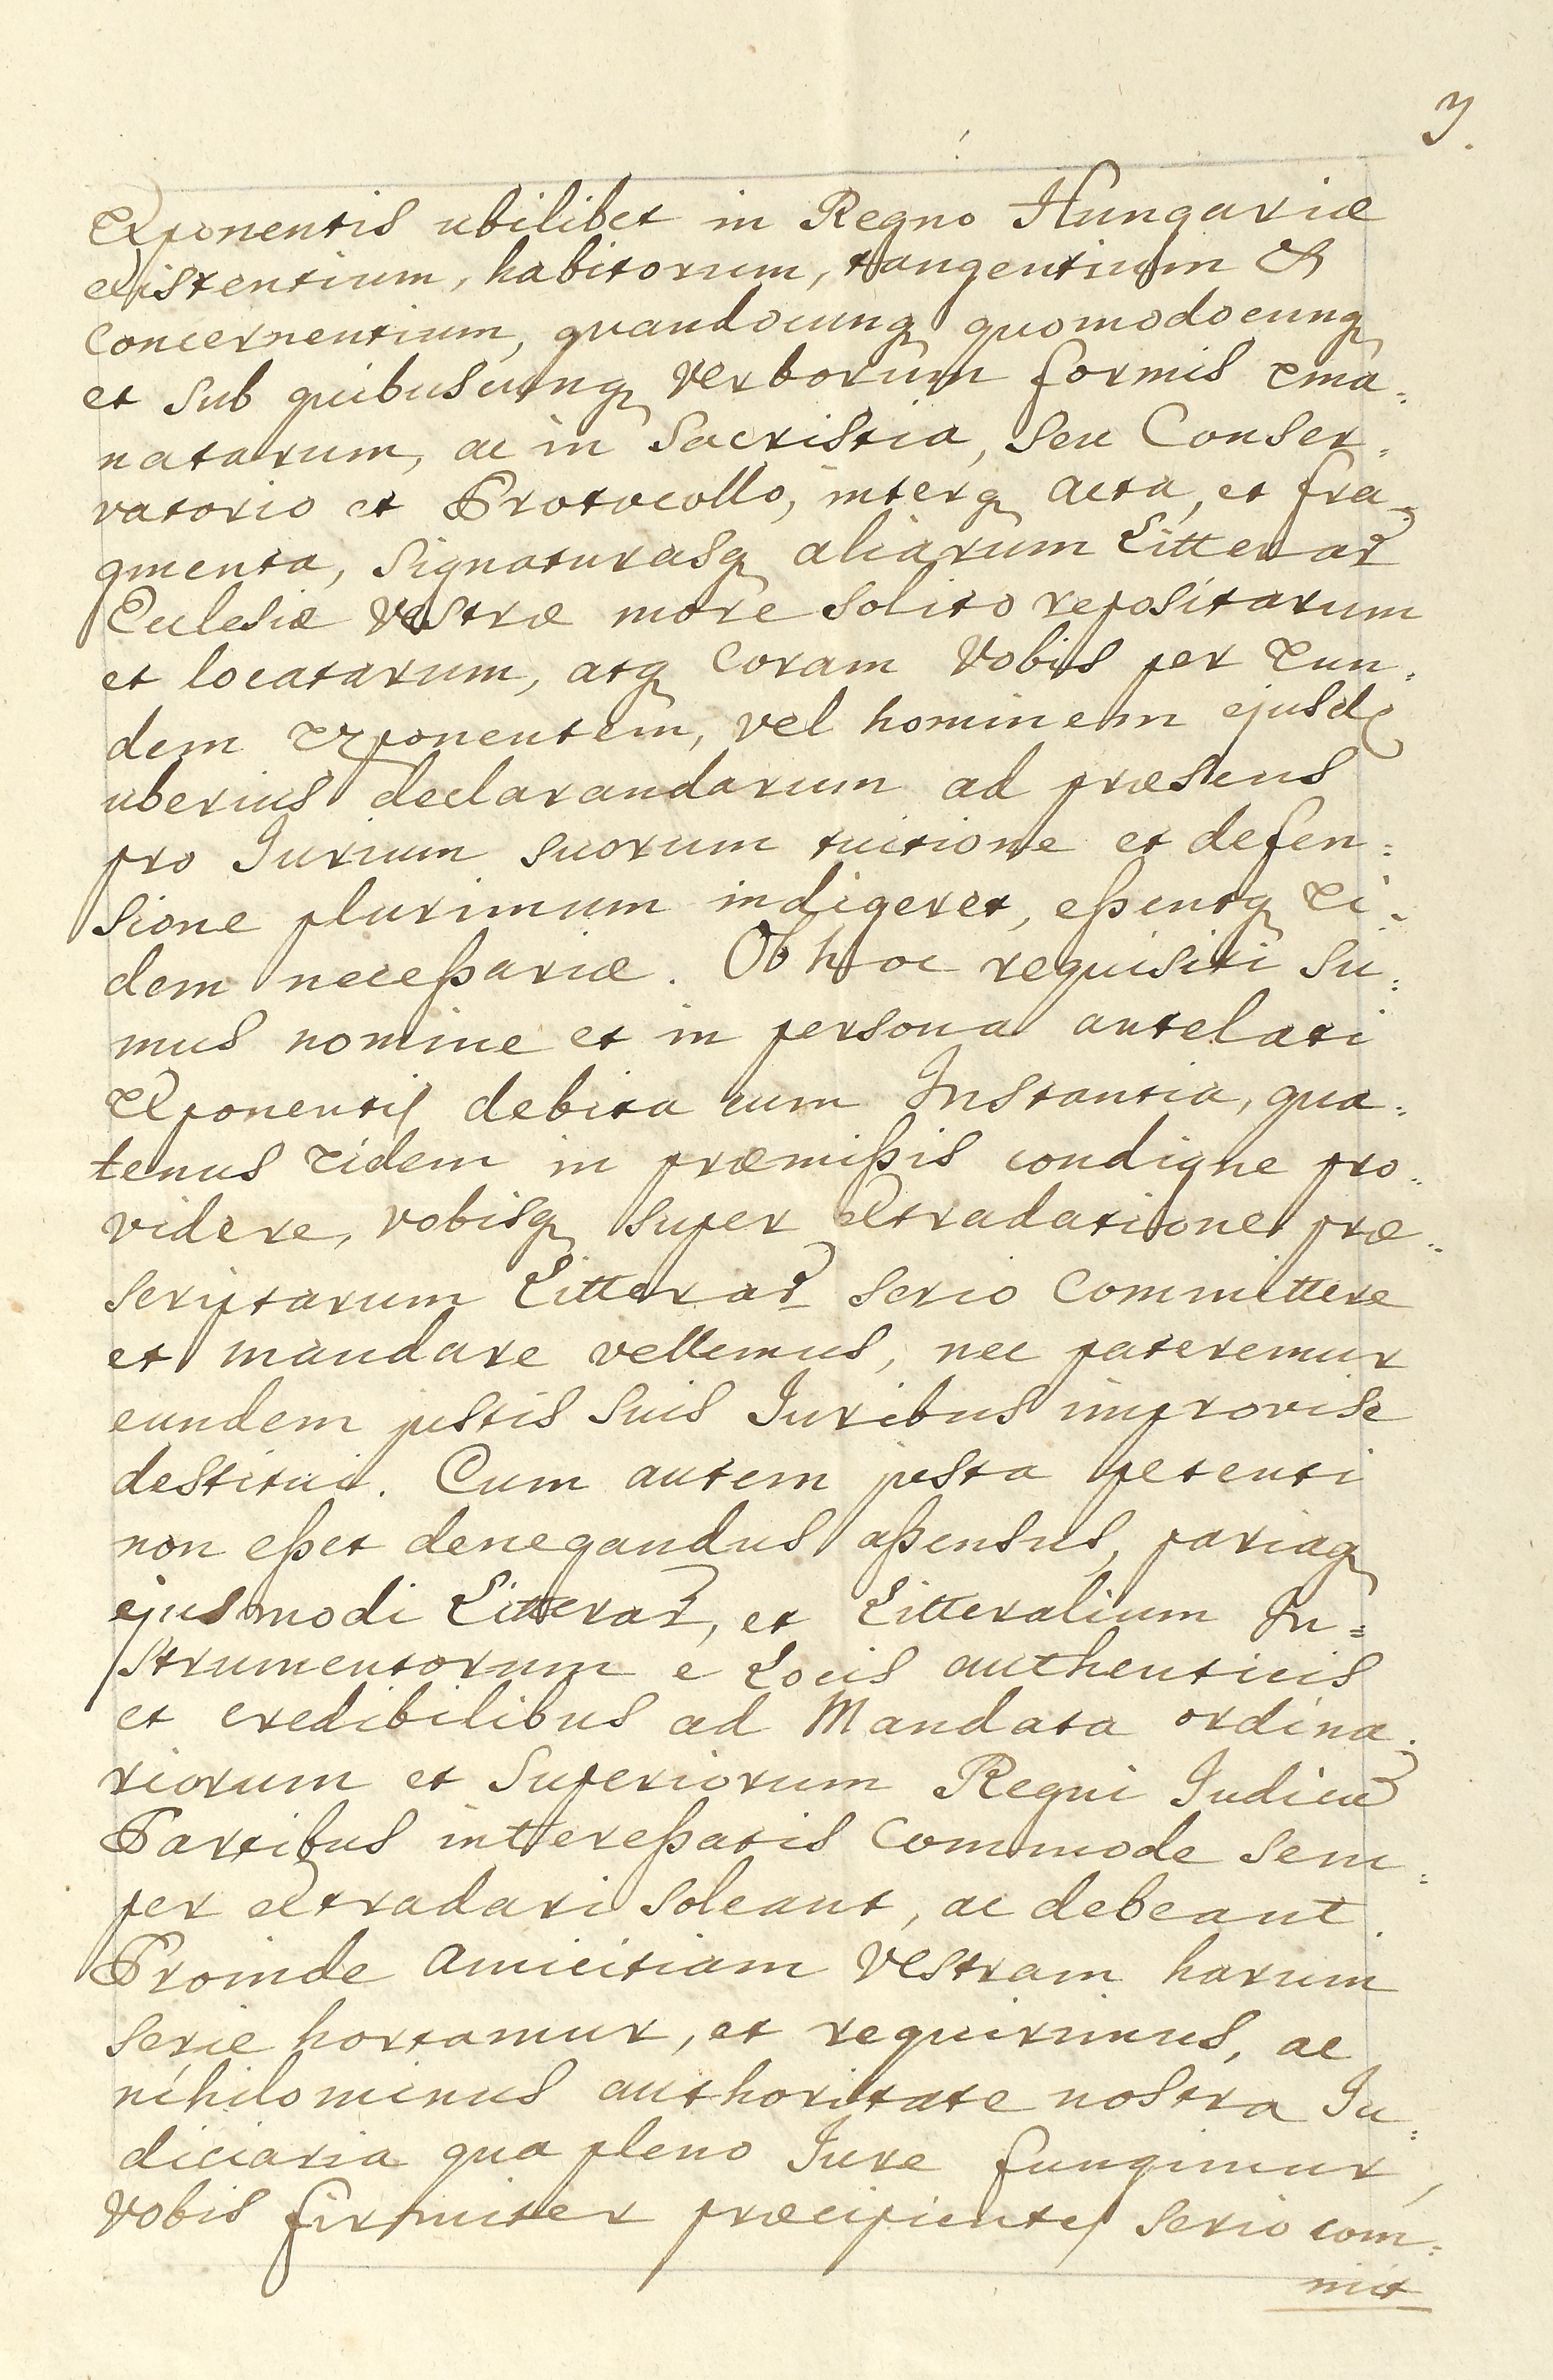 3.
Exponentis ubilibet in Regno Hungariæ
existentium, habitorum, tangentium &
concernentium, quandocunq quomodocunq
et sub quibuscunq verborum formis ema=
natarum, ac in Sacristia, seu Conser=
vatorio et Protocollo, interq acta, et fra=
gmenta, Signaturasq aliarum Litterar
Ecclesiæ Vestræ more solito repositarum
et locatarum, atq coram Vobis per Eun=
dem Exponentem, vel hominem ejusd
uberius declarandarum ad præsens
pro Jurium suorum tuitione et defen=
sione plurimum indigeret, eßentq Ei=
dem neceßariæ. Ob hoc requisiti su=
mus nomine et in persona antelati
Exponentis debita cum Instantia, qua=
tenus Eidem in præmißis condigne pro=
videre, vobisq super extradatione præ=
scriptarum Litterar serio committere
et mandare vellemus, nec pateremur
eundem justis suis Juribus improvise
destitui. Cum autem justa petenti
non eßet denegandus aßensus, pariaq
ejusmodi Litterar, et Litteralium In=
strumentorum e Locis authenticis
et credibilibus ad Mandata ordina=
riorum et Superiorum Regni Judicu
Partibus intereßatis commode sem=
per extradari soleant, ac debeant.
Proinde amicitiam Vestram harum
serie hortamur, et requirimus, ac
nihilominus authoritate nostra Ju=
diciaria qua pleno Jure fungimur,
Vobis firmiter præcipientes serio com=
mit